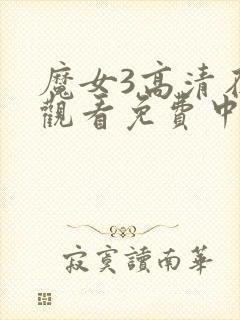 魔女3高清
觀看免費中
寂寞讀南華